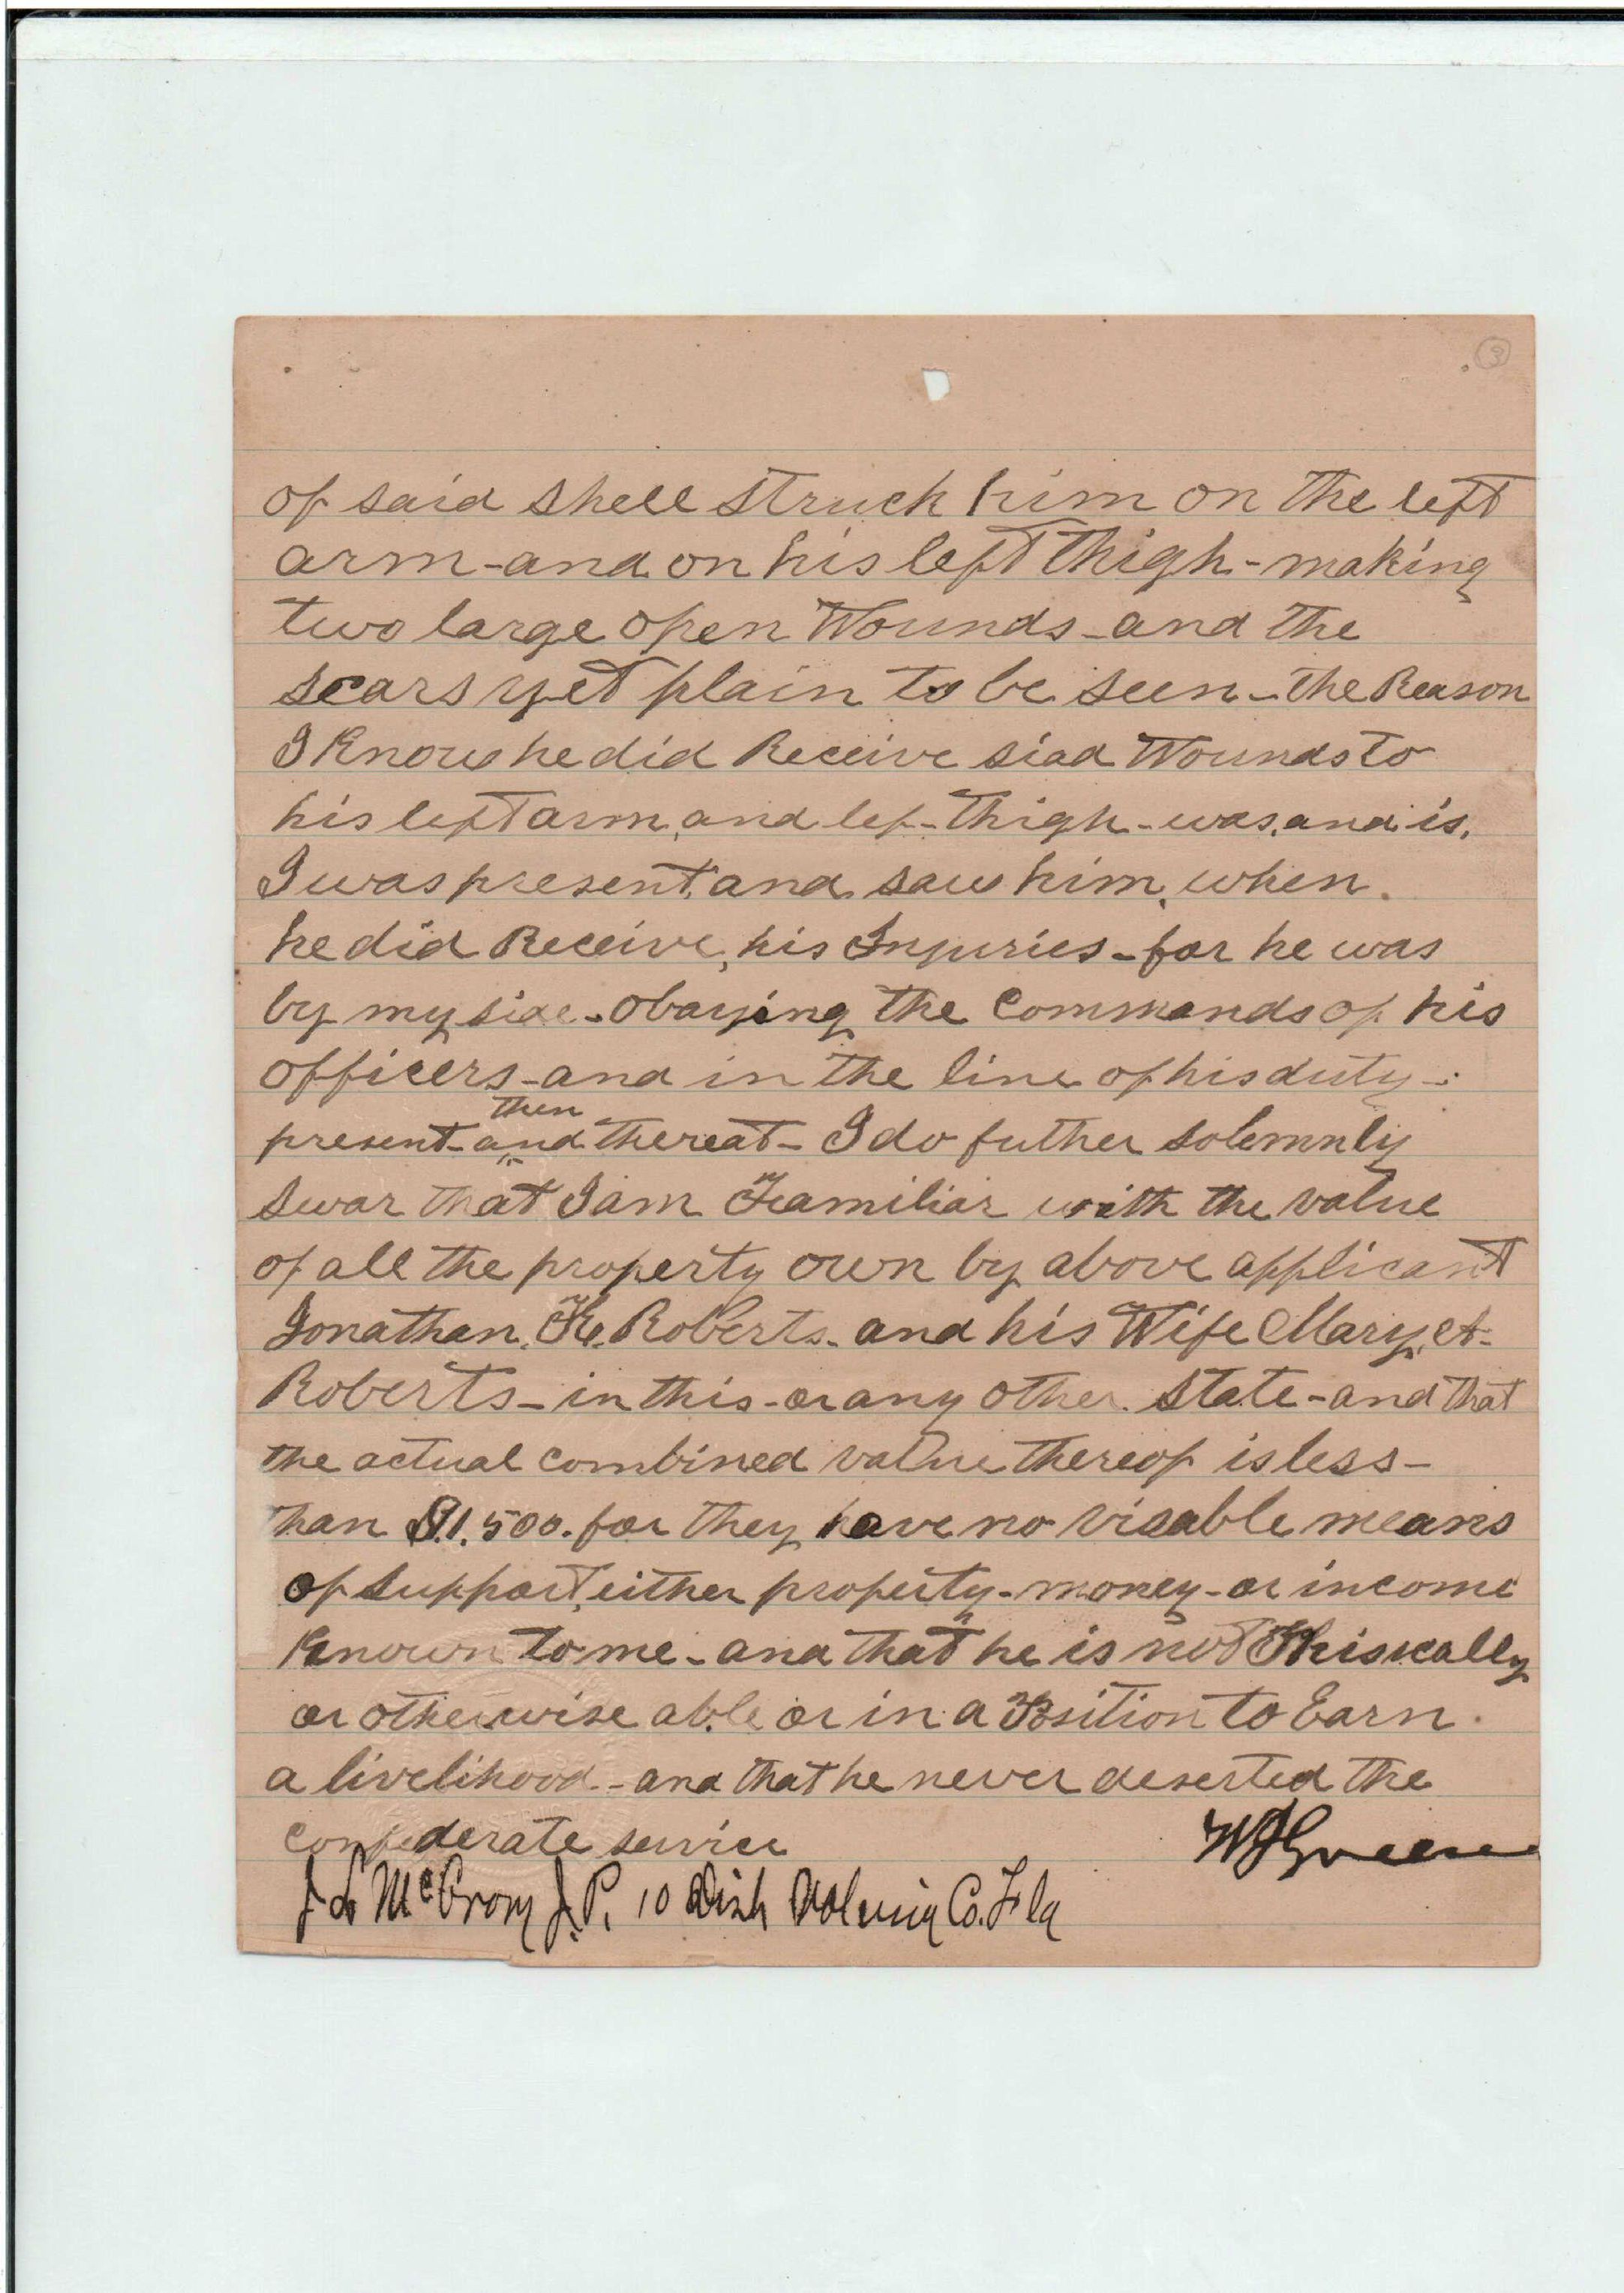 3
of said shell struck him on the left
arm - and on his left Thigh - making
two large open Wounds - and the
scars yet plain to be seen - the Reason
I Know he did Receive siad Wounds to
his left arm, and lef - thigh - was, and is,
I was present, and saw him, when.
he did Receive, his Injuries - for he was
by my side - obaying the Commands of his
officers - and in the line of his duty -
then
present - and thereat - I do futher solemnly
swar that I am Familiar with the value
of all the property own by above applicant
Jonathan. K. Roberts - and his Wife Mary. A -
Roberts - in this - or any other. State - and that
the actual combined value thereof is less -
than $1.500. for they have no visable means
of support, either property - money - or income
Known to me - and that he is not Phisically
or otherwise able or in a Position to Earn.
a livelihood. - and that he never deserted the
confederate service
W J Greene
J. L. McCrory J. P. 10 Dist Volusia Co. Fla